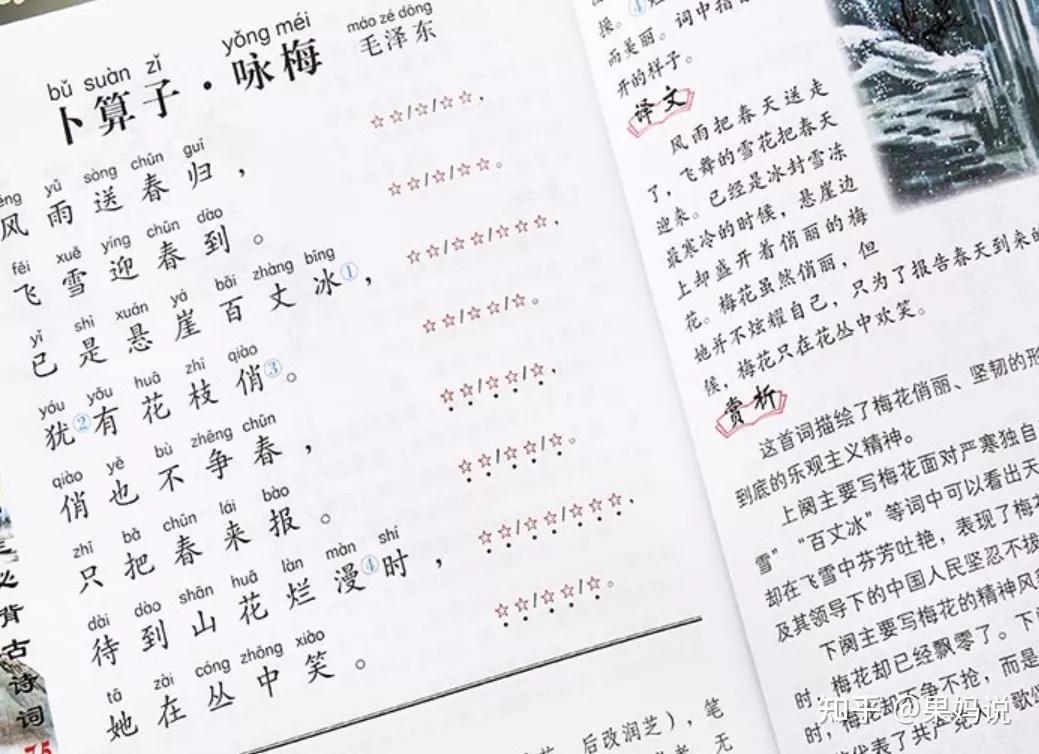 bǔ suàn zǐ yǒng méi
卜算子·咏梅
máo zé dōng
毛泽东
yǔ sòng chūn guī
风雨送春归，
☆☆/☆/☆☆，
fēi xuě yíng chūn dào
飞雪迎春到。
☆☆/☆/☆☆。
yǐ shì xuán yá bǎi zhàng bīng
已是悬崖百丈冰①，
☆☆/☆☆/☆☆☆，
yóu yǒu huā zhī qiào
犹②有花枝俏③。
☆☆/☆☆/☆。
qiào yě bù zhēng chūn
俏也不争春，
☆☆/☆☆/☆，
zhǐ bǎ chūn lái bào
只把春来报。
☆☆/☆☆/☆。
dài dào shān huā làn màn shí
待到山花烂漫④时，
☆☆/☆☆/☆☆☆，
tā zài cóng zhōng xiào
她在丛中笑。
☆☆/☆☆/☆。
必背古诗词
75
后改润芝），笔
无
操。④
词中指
而美丽。
开的样子。
译文
风雨把春天送走
了，飞舞的雪花把春天
迎来。已经是冰封雪冻
最寒冷的时候，悬崖边
上却盛开着俏丽的梅
花。梅花虽然俏丽，但
她并不炫耀自己，只为了报告春天到来的
候，梅花只在花丛中欢笑。
赏析
这首词描绘了梅花俏丽、坚韧的形
到底的乐观主义精神。
上阕主要写梅花面对严寒独自
雪”“百丈冰”等词中可以看出天
却在飞雪中芬芳吐艳，表现了梅花
及其领导下的中国人民坚忍不拔
下阕主要写梅花的精神风
时，梅花却已经飘零了。下阕
时，梅花却不争不抢，而是
代表了共产党人 歌颂
知乎 @果妈说